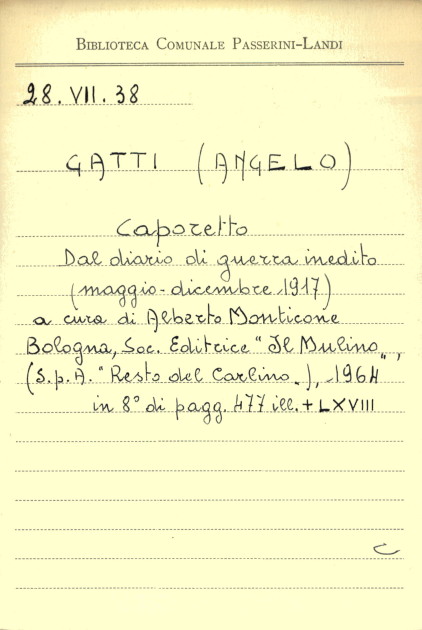 BIBLIOTECA COMUNALE PASSERINI-LANDI
28. VII. 38
GATTI (ANGELO)
Caporetto
Dal diario di guerra inedito
(maggio-dicembre 1917)
a cura di Alberto Monticone
Bologna, Soc. Editrice "Il Mulino",
(S.p.A. "Resto del Carlino"), 1964
in 8° di pagg. 477 ill. + LXVIII
C